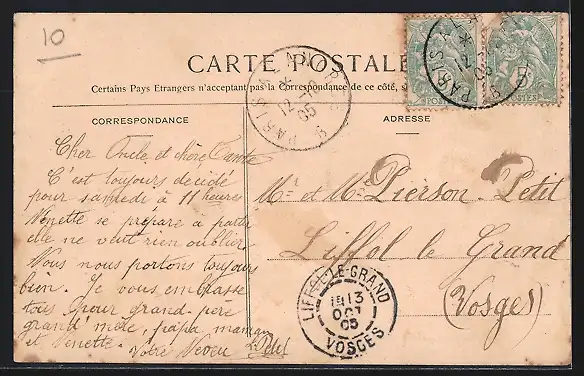 10
CARTE POSTALE
Certains Pays Etrangers n'acceptant pas la Correspondance de ce côté, s
CORRESPONDANCE
ADRESSE
Cher Oncle et chère Tante
C'est toujours décidé
pour samedi à 11 heures
Venette se prépare à partir
elle ne veut rien oublier
Vous nous portons toujours
bien. Je vous embrasse
tous pour grand-père
grand'mère, papa, maman
et Venette.
Votre Neveu
Mr et Me Pierson-Petit
Liffol le Grand
(Vosges)
PARIS
12
05
PARIS
12
05
5
LIFFOL-LE-GRAND
13
OCT
05
VOSGES